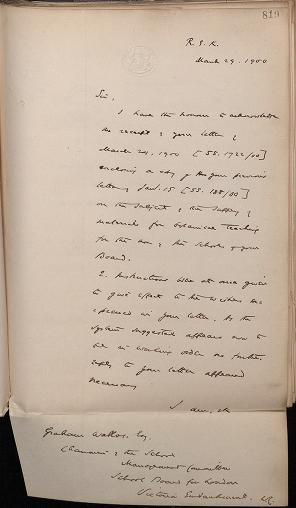 819
R. G. K.
March 29. 1900
Sir,
I have the honour to acknowledge
the receipt of your letter of
March 24. 1900 [SS. 1922/00]
enclosing a copy of your previous
letter of Jan. 15 [SS. 188/00]
on the subject of the supply of
materials for botanical teaching
for the use of the Schools of your
Board.
2. Instructions were at once given
to give effect to the wishes
expressed in your letter. As the
system suggested appears now to
be in working order no further
reply to your letter appeared
necessary
I am, etc
Graham Wallas, Esq.
Chairman of the School
Management Committee
School Board for London
Victoria Embankment.